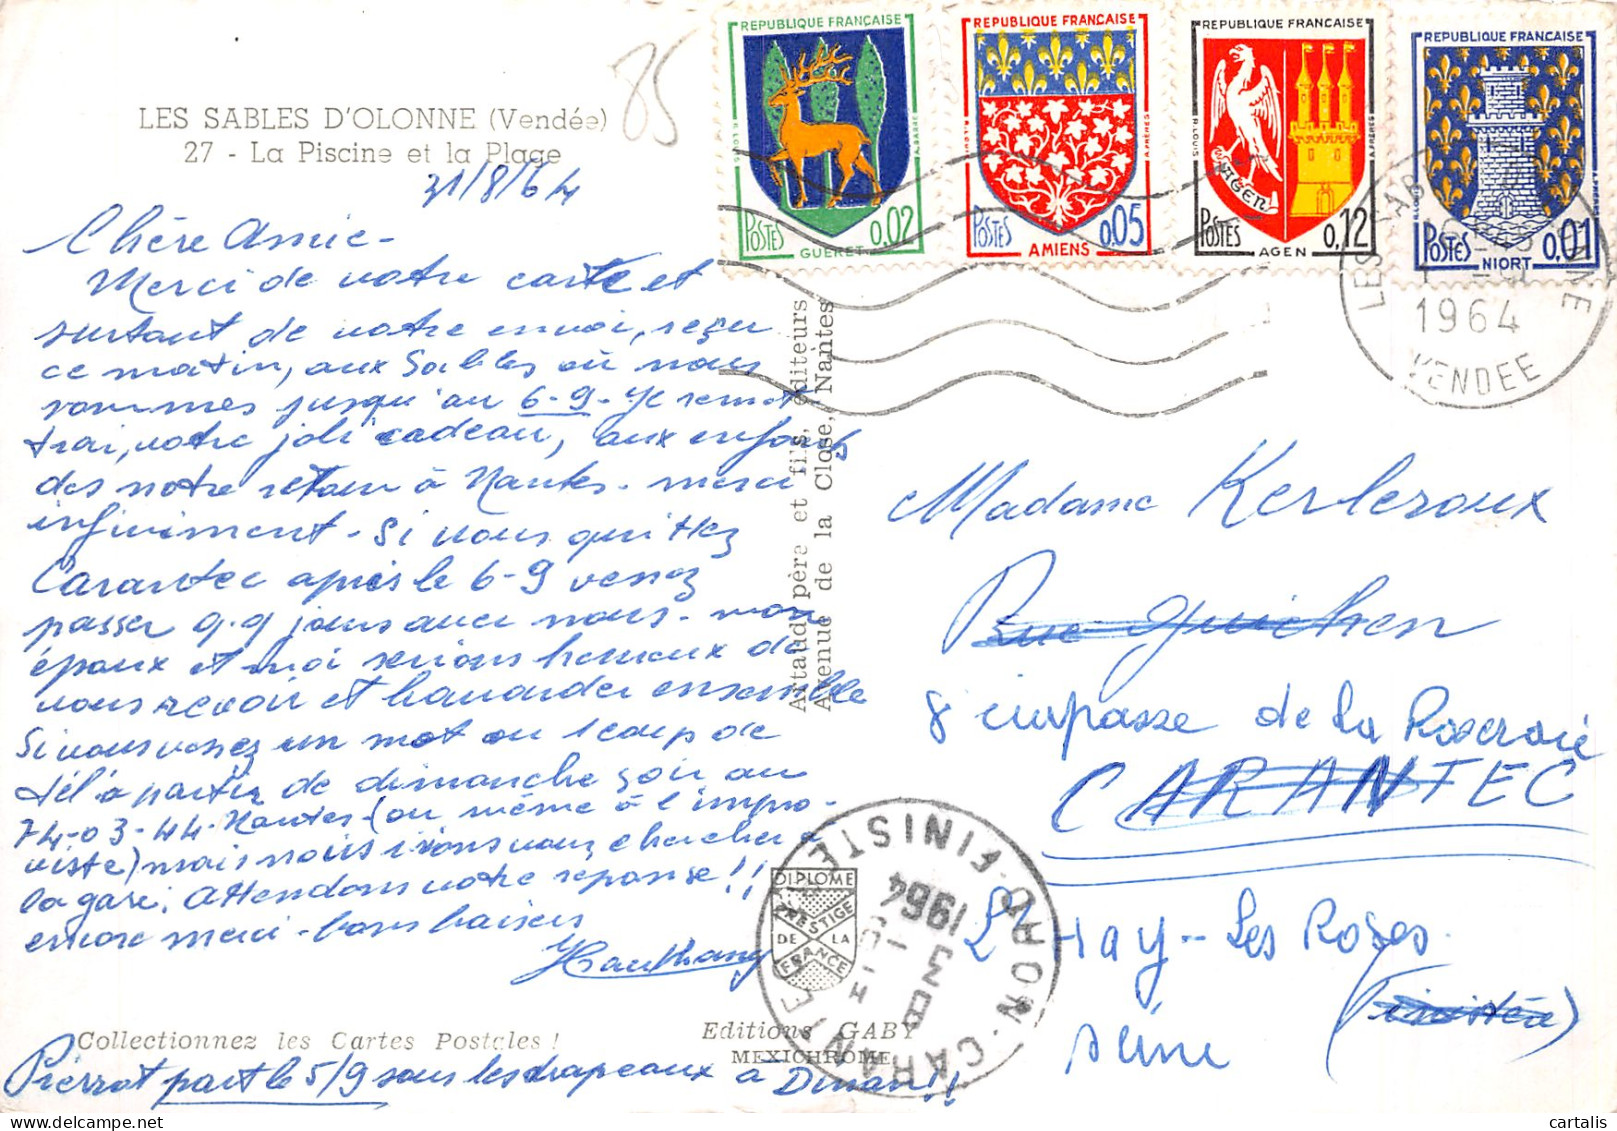 LES SABLES D'OLONNE (Vendée)
27 - La Piscine et la Plage
85
31/8/64
Chère Amie -
Merci de votre carte et
surtout de votre envoi, reçu
ce matin, aux Sables où nous
sommes jusqu'au 6-9 - Je remet-
trai, votre joli cadeau, aux enfants
dès notre retour à Nantes - merci
infiniment - Si vous quittez
Carantec après le 6-9 venez
passer q.q jours avec nous - mon
époux et moi serions heureux de
vous revoir et bavarder ensemble
Si vous venez un mot ou 1 coup de
tél à partir de dimanche soir au
74-03-44 - Nantes - (ou même à l'impro-
viste) mais nous irions vous chercher à
la gare. Attendons votre réponse !!
encore merci - bons baisers
Collectionnez les Cartes Postales !
Pierrot part le 5/9 sous les drapeaux à Dinan !!
Artaud père et fils, éditeurs
Avenue de la Close, Nantes
Editions GABY
MEXICHROME
DIPLOME
PRESTIGE
DE LA
FRANCE
REPUBLIQUE FRANÇAISE
POSTES 0,02
GUERET
REPUBLIQUE FRANÇAISE
POSTES 0,05
AMIENS
REPUBLIQUE FRANÇAISE
AGEN
POSTES 0,12
AGEN
REPUBLIQUE FRANÇAISE
POSTES 0,01
NIORT
1964
VENDEE
Madame Kerleroux
Rue Guichen
8 impasse de la Roseraie
CARANTEC
L'Hay-les Roses
(Finistère)
Seine
1964
FINISTE
cartalis
delcampe.net